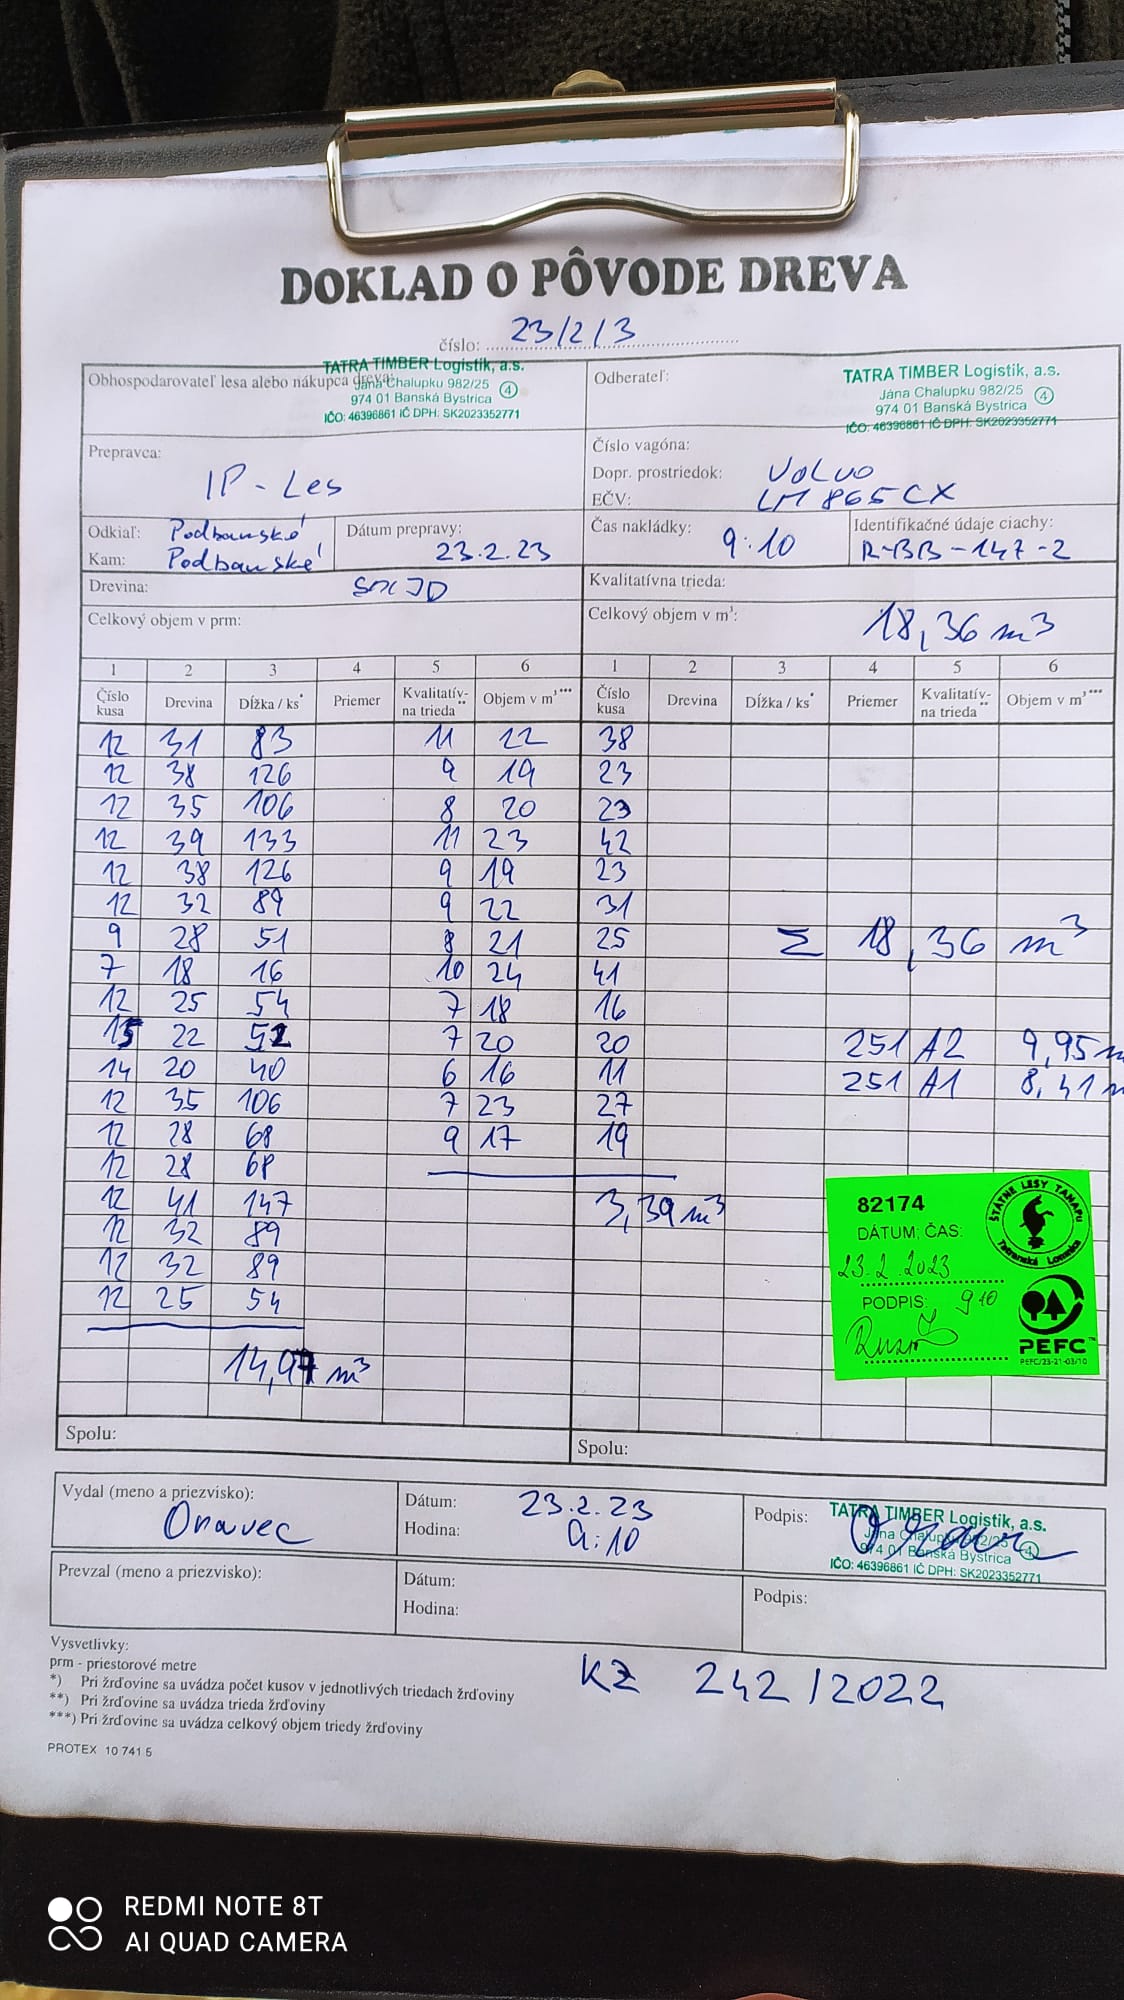 DOKLAD O PÔVODE DREVA
číslo: 23/2/3
Obhospodarovateľ lesa alebo nákupca dreva:
TATRA TIMBER Logistik, a.s.
Jána Chalupku 982/25
974 01 Banská Bystrica
4
IČO: 46396861 IČ DPH: SK2023352771
Odberateľ:
TATRA TIMBER Logistik, a.s.
Jána Chalupku 982/25
974 01 Banská Bystrica
4
IČO: 46396861 IČ DPH: SK2023352771
Prepravca:
IP - Les
Číslo vagóna:
Dopr. prostriedok: Volvo
EČV: LM 865 CX
Odkiaľ: Podbanské
Kam: Podbanské
Dátum prepravy:
23.2.23
Čas nakládky:
9:10
Identifikačné údaje ciachy:
R-BB-147-2
Drevina: SM JD
Kvalitatívna trieda:
Celkový objem v prm:
Celkový objem v m³: 18,36 m³
1 2 3 4 5 6 1 2 3 4 5 6
Číslo kusa Drevina Dĺžka / ks* Priemer Kvalitatív-na trieda** Objem v m³*** Číslo kusa Drevina Dĺžka / ks* Priemer Kvalitatív-na trieda** Objem v m³***
12 31 83 11 22 38
12 38 126 9 19 23
12 35 106 8 20 23
12 39 133 11 23 42
12 38 126 9 19 23
12 32 89 9 22 31
9 28 51 8 21 25 Σ 18,36 m³
7 18 16 10 24 41
12 25 54 7 18 16
15 22 52 7 20 20 251 A2 9,95 m
14 20 40 6 16 11 251 A1 8,41 m
12 35 106 7 23 27
12 28 68 9 17 19
12 28 68
12 41 147 3,39 m³
12 32 89
12 32 89
12 25 54
14,97 m³
82174
DÁTUM, ČAS:
23.2.2023
PODPIS: 9 10
ŠTÁTNE LESY TANAPU
Tatranská Lomnica
PEFC™
PEFC/23-21-03/10
Spolu:
Spolu:
Vydal (meno a priezvisko):
Oravec
Dátum: 23.2.23
Hodina: 9:10
Podpis:
TATRA TIMBER Logistik, a.s.
Jána Chalupku 982/25
974 01 Banská Bystrica
4
IČO: 46396861 IČ DPH: SK2023352771
Prevzal (meno a priezvisko):
Dátum:
Hodina:
Podpis:
Vysvetlivky:
prm - priestorové metre
*) Pri žrďovine sa uvádza počet kusov v jednotlivých triedach žrďoviny
**) Pri žrďovine sa uvádza trieda žrďoviny
***) Pri žrďovine sa uvádza celkový objem triedy žrďoviny
KZ 242/2022
PROTEX 10 741 5
REDMI NOTE 8T
AI QUAD CAMERA